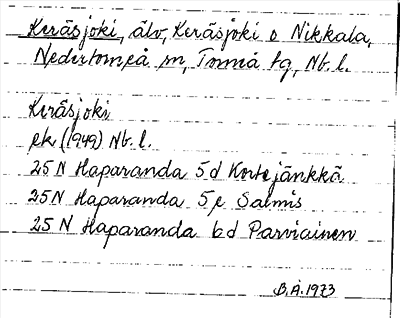 Keräsjoki, älv, Keräsjoki o Nikkala,
Nedertorneå sn, Torneå tg, Nb. l.
Keräsjoki
ek (1949) Nb. l.
25 N Haparanda 5 d Kortejänkkä
25 N Haparanda 5 e Salmis
25 N Haparanda 6 d Parviainen
B.Å. 1973